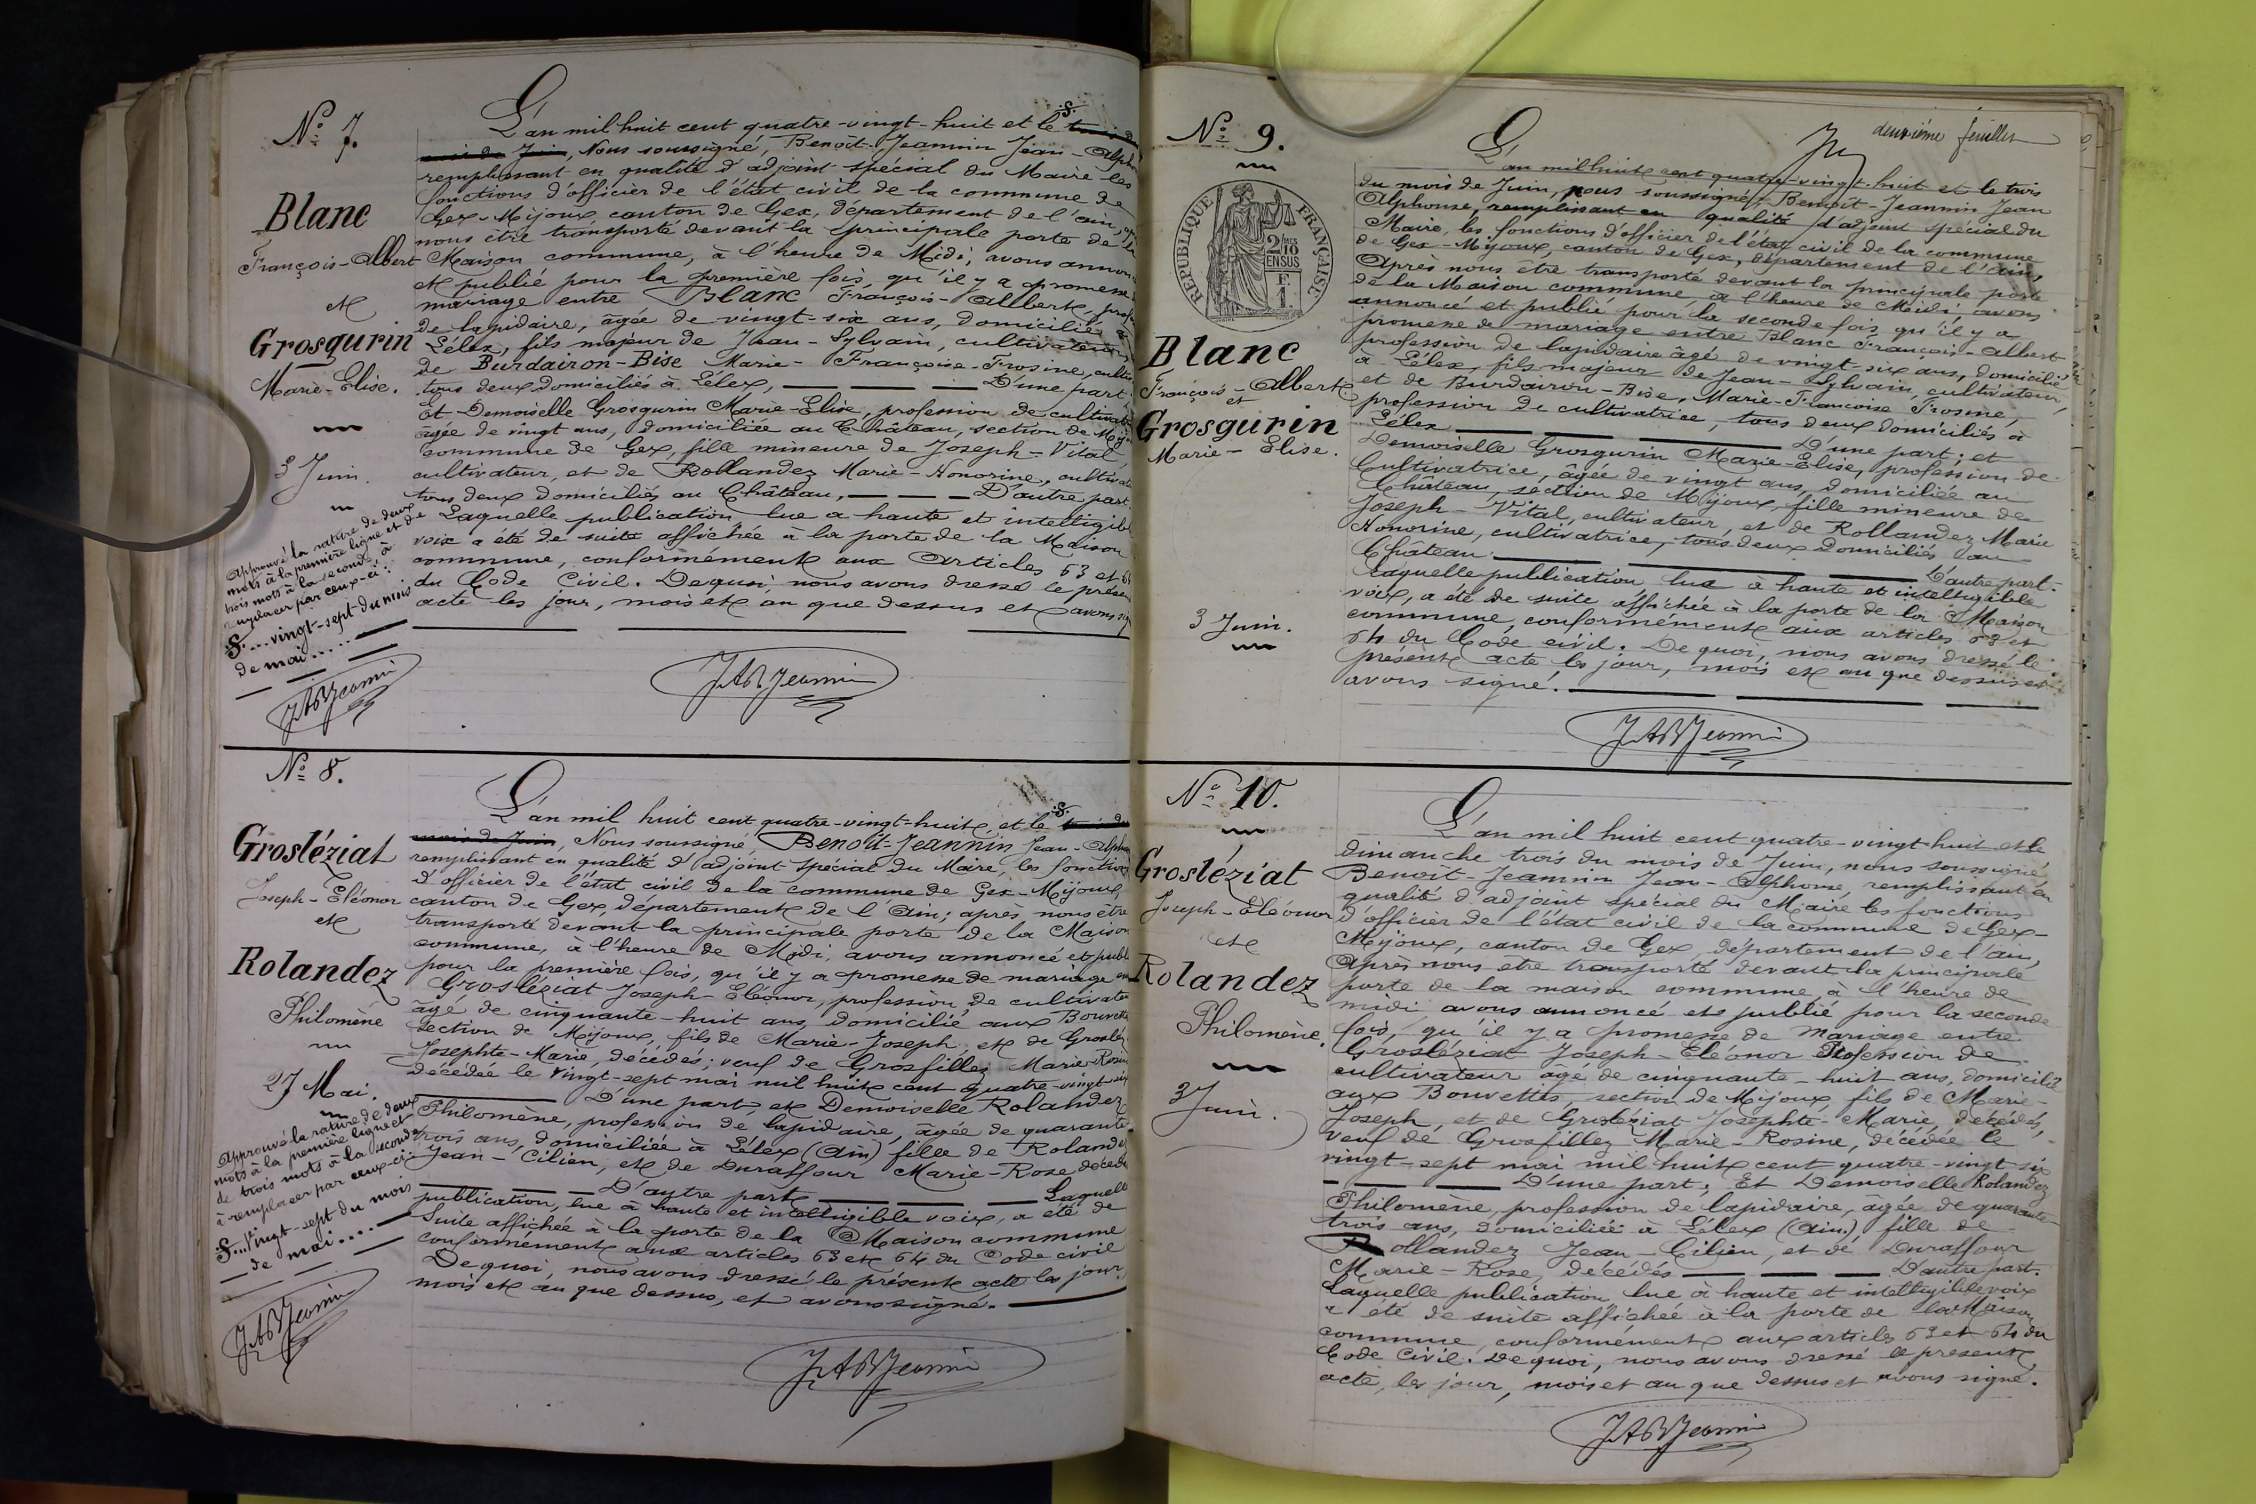 N° 7.
Blanc
François-Albert
et
Grosgurin
Marie-Elise.
3 Juin.
Approuvé la rature de deux
mots à la première ligne et de
trois mots à la seconde à
remplacer par ceux-ci:
§...vingt-sept du mois
de mai.....
JABJeannin
L'an mil huit cent quatre-vingt-huit et le §.
mois de Juin, Nous soussigné, Benoît-Jeannin Jean-Alph
remplissant en qualité d'adjoint spécial du Maire les
fonctions d'officier de l'état civil de la commune de
Gex-Mijoux, canton de Gex, département de l'ain,
nous être transporté devant la principale porte de la
Maison commune, à l'heure de Midi, avons annon
et publié pour la première fois, qu'il y a promesse
mariage entre Blanc François-Albert, prof
de lapidaire, âgée de vingt-six ans, domicilié à
Lélex, fils majeur de Jean-Sylvain, cultivateur,
de Burdairon-Bise Marie-Françoise-Frosine, cultiv
tous deux domiciliés à Lélex, D'une part
Et Demoiselle Grosgurin Marie-Elise, profession de cultivat
âgée de vingt ans, domiciliée au Château, section de Mij
commune de Gex, fille mineure de Joseph-Vital,
cultivateur, et de Rollandez Marie-Honorine, cultivat
tous deux domiciliés au Château, D'autre part.
Laquelle publication lue a haute et intelligibl
voix a été de suite affichée à la porte de la Maison
commune, conformément aux Articles 63 et 64
du Code Civil. De quoi, nous avons dressé le présen
acte les jour, mois et an que dessus et avons sig
JABJeannin
N° 8.
Grosléziat
Joseph-Eléonor
et
Rolandez
Philomène
27 Mai.
Approuvé la rature de deux
mots à la première ligne et
de trois mots à la seconde
à remplacer par ceux-ci:
§...Vingt-sept du mois
de mai....
JABJeannin
L'an mil huit cent quatre-vingt-huit, et le §.
mois de Juin, Nous soussigné, Benoît-Jeannin Jean-Alpho
remplissant en qualité d'adjoint spécial du Maire, les fonctions
d'officier de l'état civil de la commune de Gex-Mijoux,
canton de Gex, département de l'Ain; après nous être
transporté devant la principale porte de la Maison
commune, à l'heure de Midi, avons annoncé et publ
pour la première fois, qu'il y a promesse de mariage en
Grosléziat Joseph-Eléonor, profession de cultivate
âgé de cinquante-huit ans, domicilié aux Bouvette
section de Mijoux, fils de Marie-Joseph et de Groslé
Josephte-Marie, décédés; veuf de Grosfillez Marie-Rosin
décédée le vingt-sept mai mil huit cent quatre-vingt six
D'une part, et Demoiselle Rolandez
Philomène, profession de lapidaire, âgée de quarante
trois ans, domiciliée à Lélex (Ain) fille de Roland
Jean-Cilien, et de Duraffour Marie-Rose décédé
D'autre part Laquelle
publication, lue à haute et intelligible voix, a été de
suite affichée à la porte de la Maison commune
conformément aux articles 63 et 64 du Code civil
De quoi, nous avons dressé le présent acte les jour,
mois et an que dessus, et avons signé.
JABJeannin
deuxième feuillet
N° 9.
RÉPUBLIQUE FRANÇAISE
2/10
EN SUS
Blanc
François-Albert
et
Grosgurin
Marie-Elise.
3 Juin.
L'an mil huit cent quatre-vingt-huit et le trois
du mois de Juin, nous soussigné, Benoît-Jeannin Jean
Alphonse, remplissant en qualité d'adjoint spécial du
Maire, les fonctions d'officier de l'état civil de la commune
de Gex-Mijoux, canton de Gex, département de l'Ain,
Après nous être transporté devant la principale porte
de la Maison commune, à l'heure de Midi, avons
annoncé et publié pour la seconde fois, qu'il y a
promesse de mariage entre Blanc François-Albert
profession de lapidaire âgé de vingt-six ans, domicilié
à Lélex, fils majeur de Jean-Sylvain, cultivateur,
et de Burdairon-Bise, Marie-Françoise Frosine,
profession de cultivatrice, tous deux domiciliés à
Lélex D'une part; et
Demoiselle Grosgurin Marie-Elise, profession de
Cultivatrice, âgée de vingt ans, domiciliée au
Château, section de Mijoux, fille mineure de
Joseph-Vital, cultivateur, et de Rollandez Marie
Honorine, cultivatrice, tous deux Domiciliés au
Château D'autre part.
Laquelle publication lue à haute et intelligible
voix, a été de suite affichée à la porte de la Maison
commune, conformément aux articles 63 et
64 du Code civil. De quoi, nous avons dressé le
présent acte les jour, mois et an que dessus et
avons signé.
JABJeannin
N° 10.
Grosléziat
Joseph-Eléonor
et
Rolandez
Philomène.
3 Juin.
L'an mil huit cent quatre-vingt-huit et le
dimanche trois du mois de Juin, nous soussigné
Benoît-Jeannin Jean-Alphonse, remplissant en
qualité d'adjoint spécial du Maire les fonctions
d'officier de l'état civil de la commune de Gex-
Mijoux, canton de Gex, département de l'ain,
Après nous être transporté devant la principale
porte de la maison commune, à l'heure de
midi, avons annoncé et publié pour la seconde
fois, qu'il y a promesse de mariage entre
Grosléziat Joseph-Eléonor Profession de
cultivateur âgé de cinquante-huit ans, domicilié
aux Bouvettes, section de Mijoux, fils de Marie-
Joseph, et de Grosléziat Josephte-Marie, décédés,
veuf de Grosfillez Marie-Rosine, décédée le
vingt-sept mai mil huit cent quatre-vingt six
D'une part; Et Demoiselle Rolandez
Philomène, profession de lapidaire, âgée de quarante-
trois ans, domiciliée à Lélex (Ain.) fille de
Rollandez Jean-Cilien, et de Duraffour
Marie-Rose, décédés D'autre part.
Laquelle publication lue à haute et intelligible voix
a été de suite affichée à la porte de la Maison
commune, conformément aux articles 63 et 64 du
Code Civil. De quoi, nous avons dressé le présent
acte, les jour, mois et an que dessus et avons signé.
JABJeannin